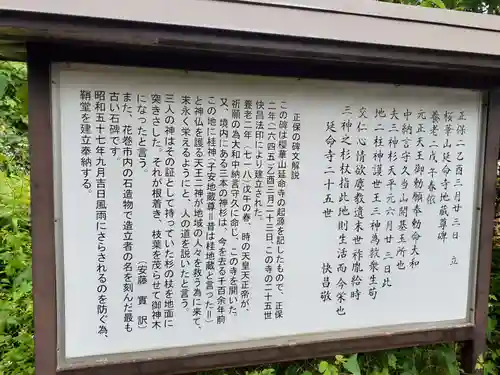 正保二乙酉三月廿三日 立
桜峯山延命寺地蔵尊碑
養老二戊午春依
元正天王御勅願奉勅命大和
中納言守久当山開基玉所也
夫三神杉天平元六月廿三日此
地二柱神護世王三神為救衆生苟
交仁心情欲塵教遺末世祚胤給時
三神之杉杖指此地則生活而今栄也
延命寺二十五世 快昌敬
正保の碑文解説
この碑は桜華山延命寺の起源を記したもので、正保
二年(一六四五)乙酉三月二十三日、この寺の二十五世
快昌法印により建立された。
養老二年(七一八)戊午の春、時の天皇天正帝が、
祈願の為大和中納言守久に命じ、この寺を開いた。
又、境内にある三本の神杉は、今を去る千百余年前
この地に桂神(子安地蔵尊=昔は桂地蔵と言った=)
と神仏を護る天王三神が地域の人々を救う為に来て、
末永く栄えるようにと、人の道を説いたと言う。
三人の神はその証として持っていた杉の杖を地面に
突きさした。それが根着き、枝葉を茂らせて御神木
になったと言う。 〔安藤 實 訳〕
また、花巻市内の石造物で造立者の名を刻んだ最も
古い石碑です。
昭和五十七年九月吉日風雨にさらされるのを防ぐ為、
鞘堂を建立奉納する。